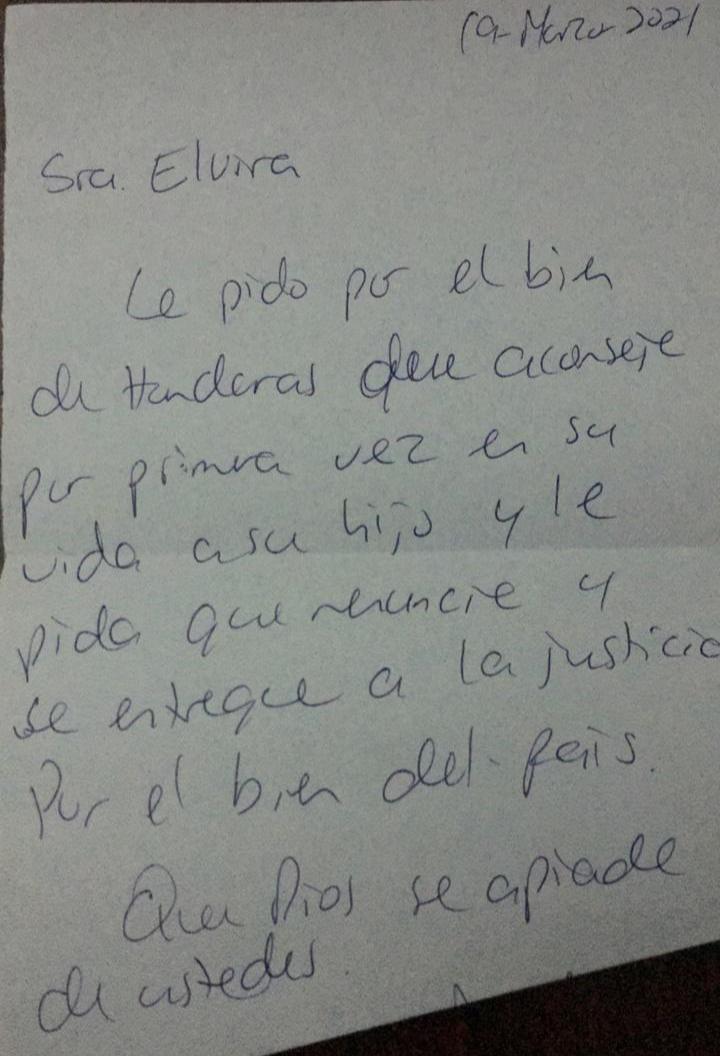 19-Marzo-2021
Sra. Elvira
Le pido por el bien
de Honduras que aconseje
por primera vez en su
vida a su hijo y le
pida que renuncie y
se entregue a la justicia
Por el bien del país.
Que Dios se apiade
de ustedes.